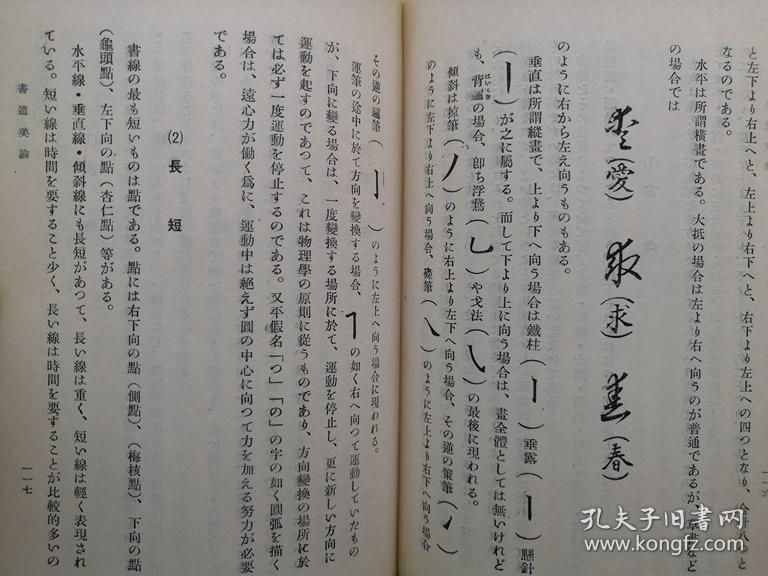 と左下より右上へと、左上より右下へと、右下より左上への四つとなり、
なるのである。
水平は所謂横畫である。大抵の場合は左より右へ向うのが普通であるが、草書など
の場合では
(愛)
(求)
(春)
のように右から左え向うものもある。
垂直は所謂縱畫で、上より下へ向う場合は鐵柱( )垂露( )懸針
( )が之に屬する。而して下より上に向う場合は、畫全體としては無いけれど
も、背趯の場合、卽ち浮鵞( )や戈法( )の最後に現われる。
傾斜は掠筆( )のように右上より左下へ向う場合、その逆の策筆( )
のように左下より右上へ向う場合、磔筆( )のように左上より右下へ向う場合
その逆の趯筆( )のように左上へ向う場合に現われる。
運筆の途中に於て方向を變換する場合、 の如く右へ向つて運動していたもの
が、下向に變る場合は、一度變換する場所に於て、運動を停止し、更に新しい方向に
運動を起すのであつて、これは物理學の原則に從うものであり、方向變換の場所に於
ては必ず一度運動を停止するのである。又平假名「つ」「の」の字の如く圓弧を描く
場合は、遠心力が働く爲に、運動中は絕えず圓の中心に向つて力を加える努力が必要
である。
(2) 長短
書線の最も短いものは點である。點には右下向の點(側點)、(梅核點)、下向の點
(龜頭點)、左下向の點(杏仁點)等がある。
水平線・垂直線・傾斜線にも長短があつて、長い線は重く、短い線は輕く表現され
ている。短い線は時間を要すること少く、長い線は時間を要することが比較的多いの
書道美論
一一七
孔夫子旧书网
www.kongfz.com